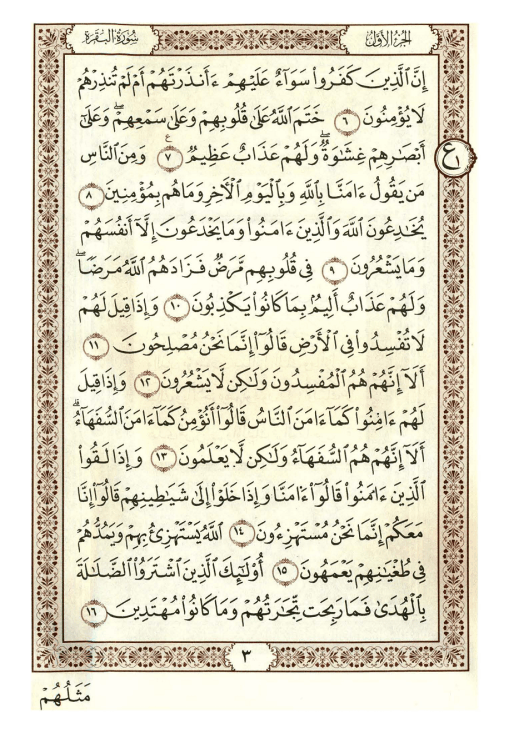 الجزء الأول
سورة البقرة
إِنَّ ٱلَّذِينَ كَفَرُوا۟ سَوَآءٌ عَلَيْهِمْ ءَأَنذَرْتَهُمْ أَمْ لَمْ تُنذِرْهُمْ
لَا يُؤْمِنُونَ ٦ خَتَمَ ٱللَّهُ عَلَىٰ قُلُوبِهِمْ وَعَلَىٰ سَمْعِهِمْ ۖ وَعَلَىٰٓ
أَبْصَـٰرِهِمْ غِشَـٰوَةٌ ۖ وَلَهُمْ عَذَابٌ عَظِيمٌ ٧ ع وَمِنَ ٱلنَّاسِ
ع ١
مَن يَقُولُ ءَامَنَّا بِٱللَّهِ وَبِٱلْيَوْمِ ٱلْـَٔاخِرِ وَمَا هُم بِمُؤْمِنِينَ ٨
يُخَـٰدِعُونَ ٱللَّهَ وَٱلَّذِينَ ءَامَنُوا۟ وَمَا يَخْدَعُونَ إِلَّآ أَنفُسَهُمْ
وَمَا يَشْعُرُونَ ٩ فِى قُلُوبِهِم مَّرَضٌ فَزَادَهُمُ ٱللَّهُ مَرَضًا ۖ
وَلَهُمْ عَذَابٌ أَلِيمٌۢ بِمَا كَانُوا۟ يَكْذِبُونَ ١٠ وَإِذَا قِيلَ لَهُمْ
لَا تُفْسِدُوا۟ فِى ٱلْأَرْضِ قَالُوٓا۟ إِنَّمَا نَحْنُ مُصْلِحُونَ ١١
أَلَآ إِنَّهُمْ هُمُ ٱلْمُفْسِدُونَ وَلَـٰكِن لَّا يَشْعُرُونَ ١٢ وَإِذَا قِيلَ
لَهُمْ ءَامِنُوا۟ كَمَآ ءَامَنَ ٱلنَّاسُ قَالُوٓا۟ أَنُؤْمِنُ كَمَآ ءَامَنَ ٱلسُّفَهَآءُ ۗ
أَلَآ إِنَّهُمْ هُمُ ٱلسُّفَهَآءُ وَلَـٰكِن لَّا يَعْلَمُونَ ١٣ وَإِذَا لَقُوا۟
ٱلَّذِينَ ءَامَنُوا۟ قَالُوٓا۟ ءَامَنَّا وَإِذَا خَلَوْا۟ إِلَىٰ شَيَـٰطِينِهِمْ قَالُوٓا۟ إِنَّا
مَعَكُمْ إِنَّمَا نَحْنُ مُسْتَهْزِءُونَ ١٤ ٱللَّهُ يَسْتَهْزِئُ بِهِمْ وَيَمُدُّهُمْ
فِى طُغْيَـٰنِهِمْ يَعْمَهُونَ ١٥ أُو۟لَـٰٓئِكَ ٱلَّذِينَ ٱشْتَرَوُا۟ ٱلضَّلَـٰلَةَ
بِٱلْهُدَىٰ فَمَا رَبِحَت تِّجَـٰرَتُهُمْ وَمَا كَانُوا۟ مُهْتَدِينَ ١٦
٣
مَثَلُهُمْ